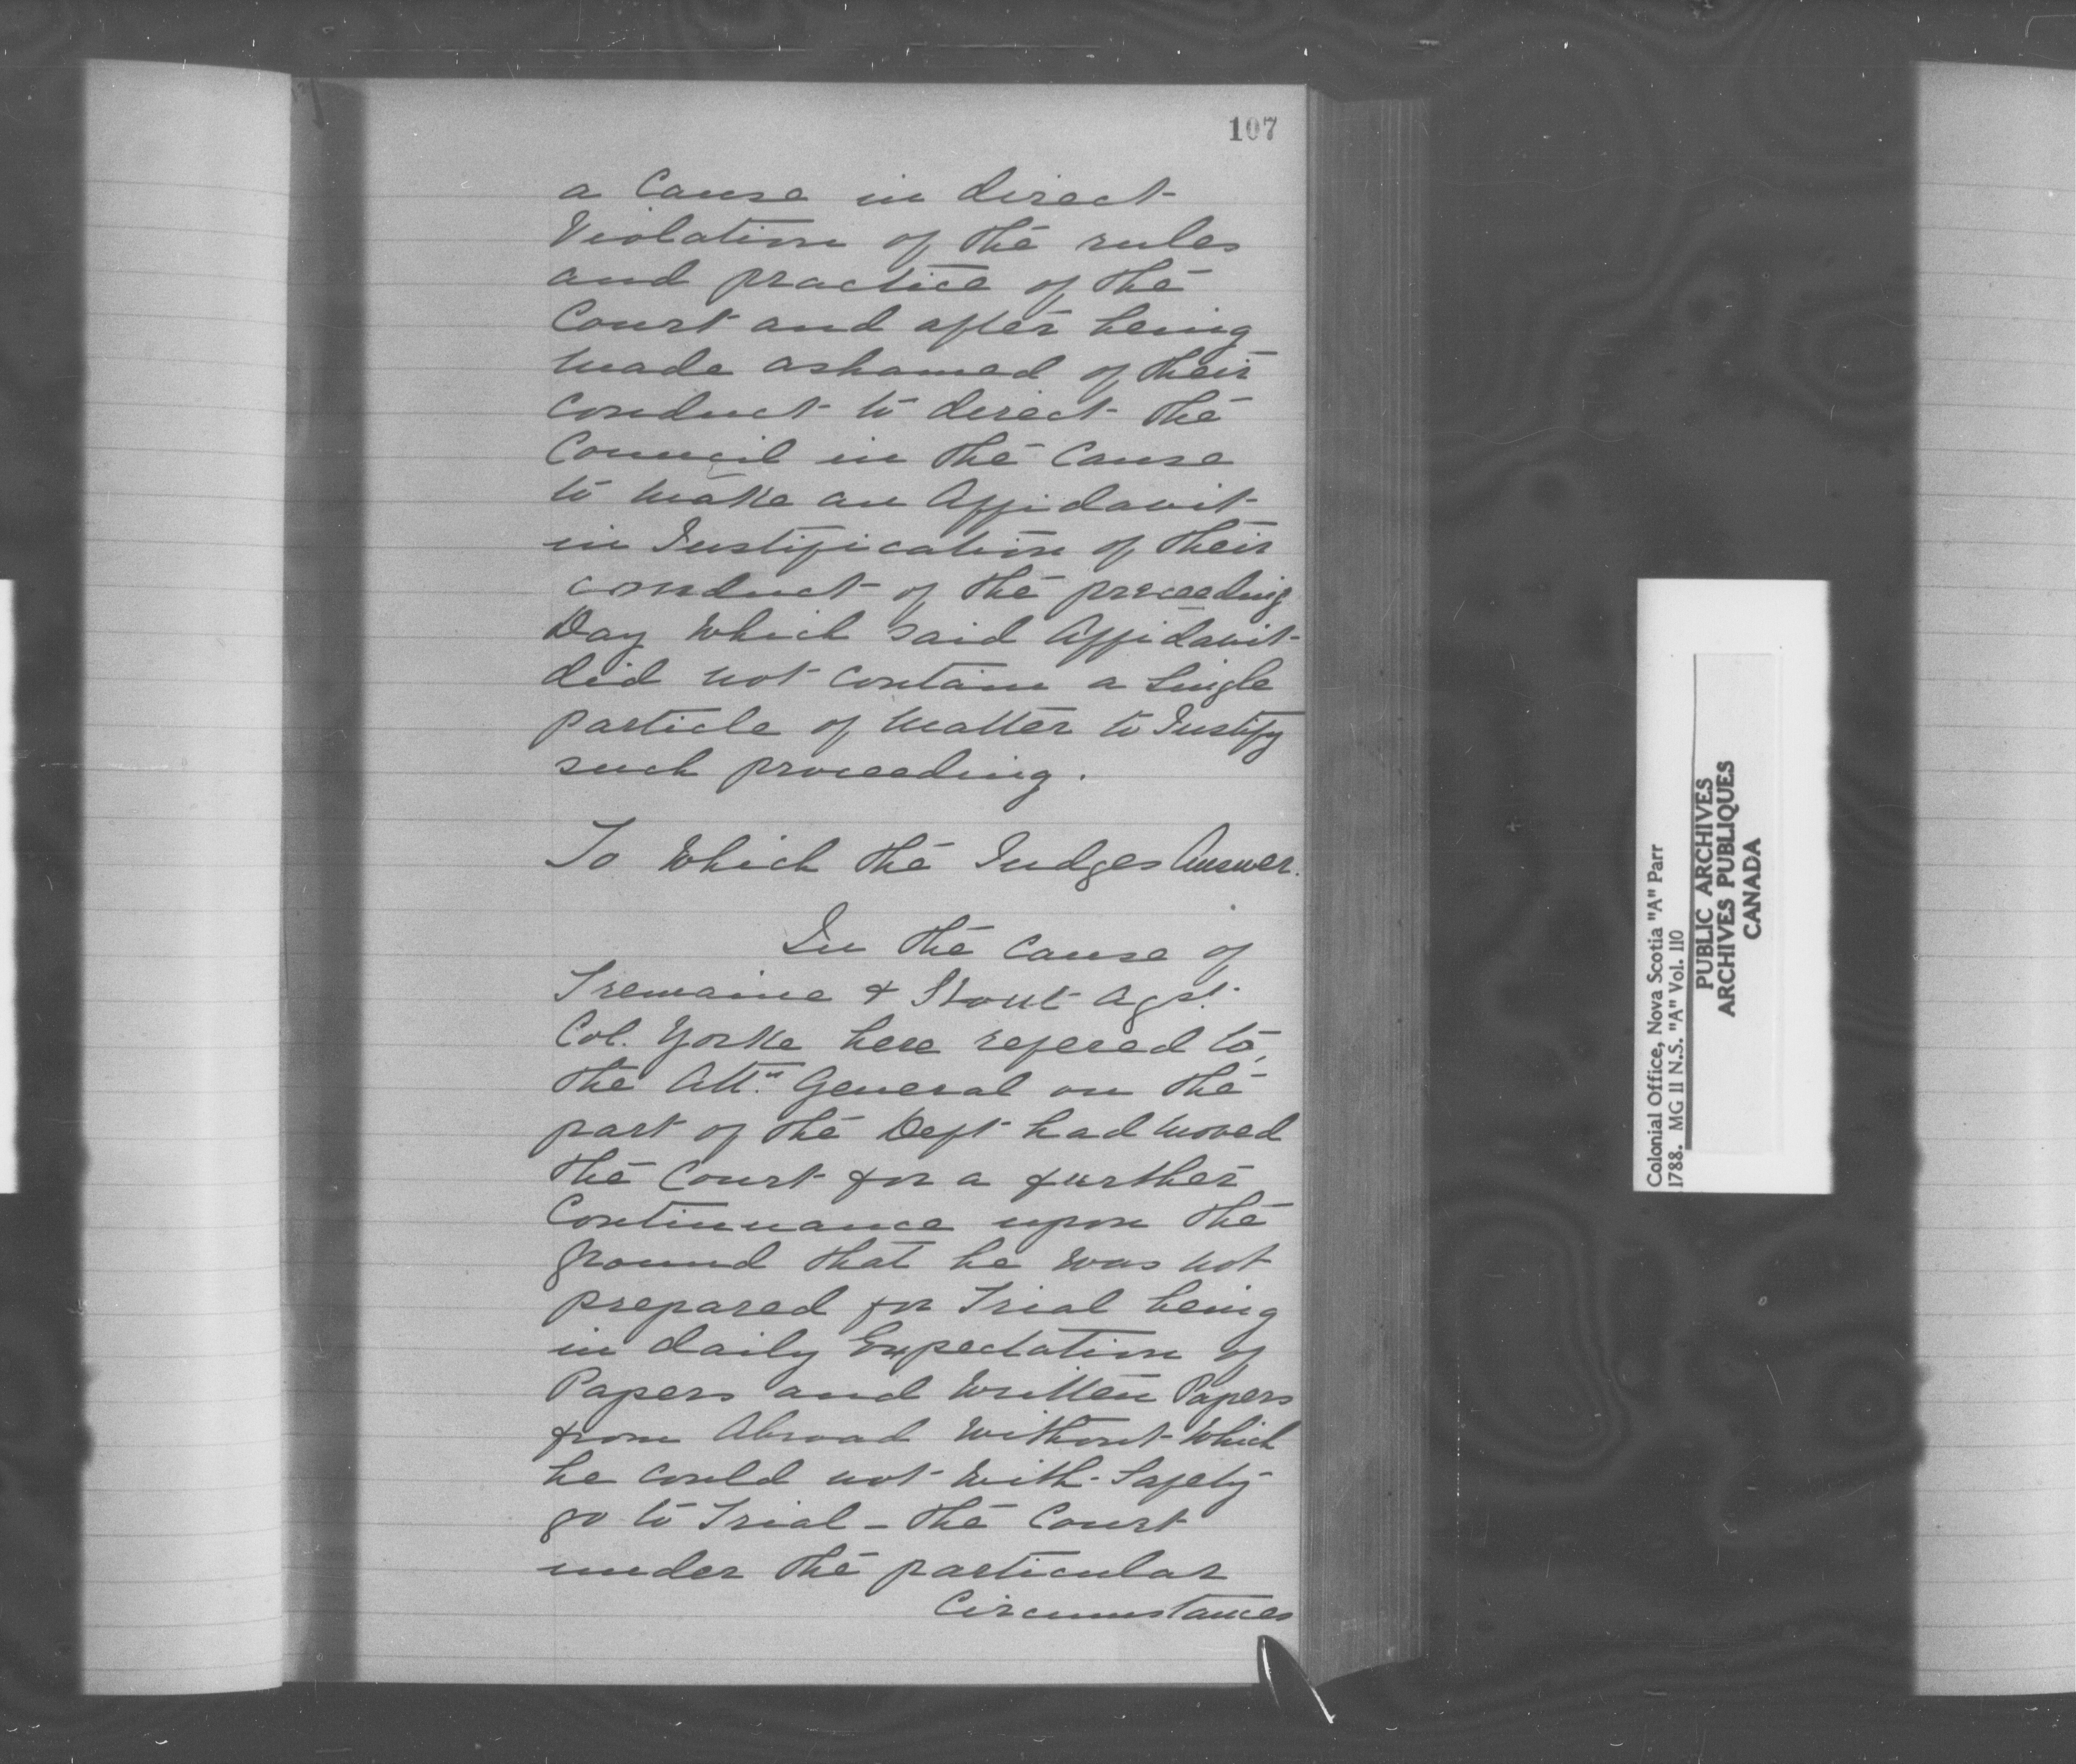 107
a Cause in direct
Violation of the rules
and practice of the
Court and after being
made ashamed of their
Conduct to direct the
Council in the Cause
to make an Affidavit
in Justification of their
conduct of the preceeding
Day which said Affidavit
did not contain a single
particle of matter to Justify
such proceeding.
To which the Judges Answer.
In the Cause of
Tremaine & Stout agst.
Col. Yorke here refered to,
the Attn. General on the
part of the Deft had moved
the Court for a further
Continuance upon the
ground that he was not
prepared for Trial being
in daily Expectation of
Papers and written Papers
from Abroad without which
he could not with Safety
go to Trial - the Court
under the particular
Circumstances
Colonial Office, Nova Scotia "A" Parr
1788. MG 11 N.S. "A" Vol. 110
PUBLIC ARCHIVES
ARCHIVES PUBLIQUES
CANADA